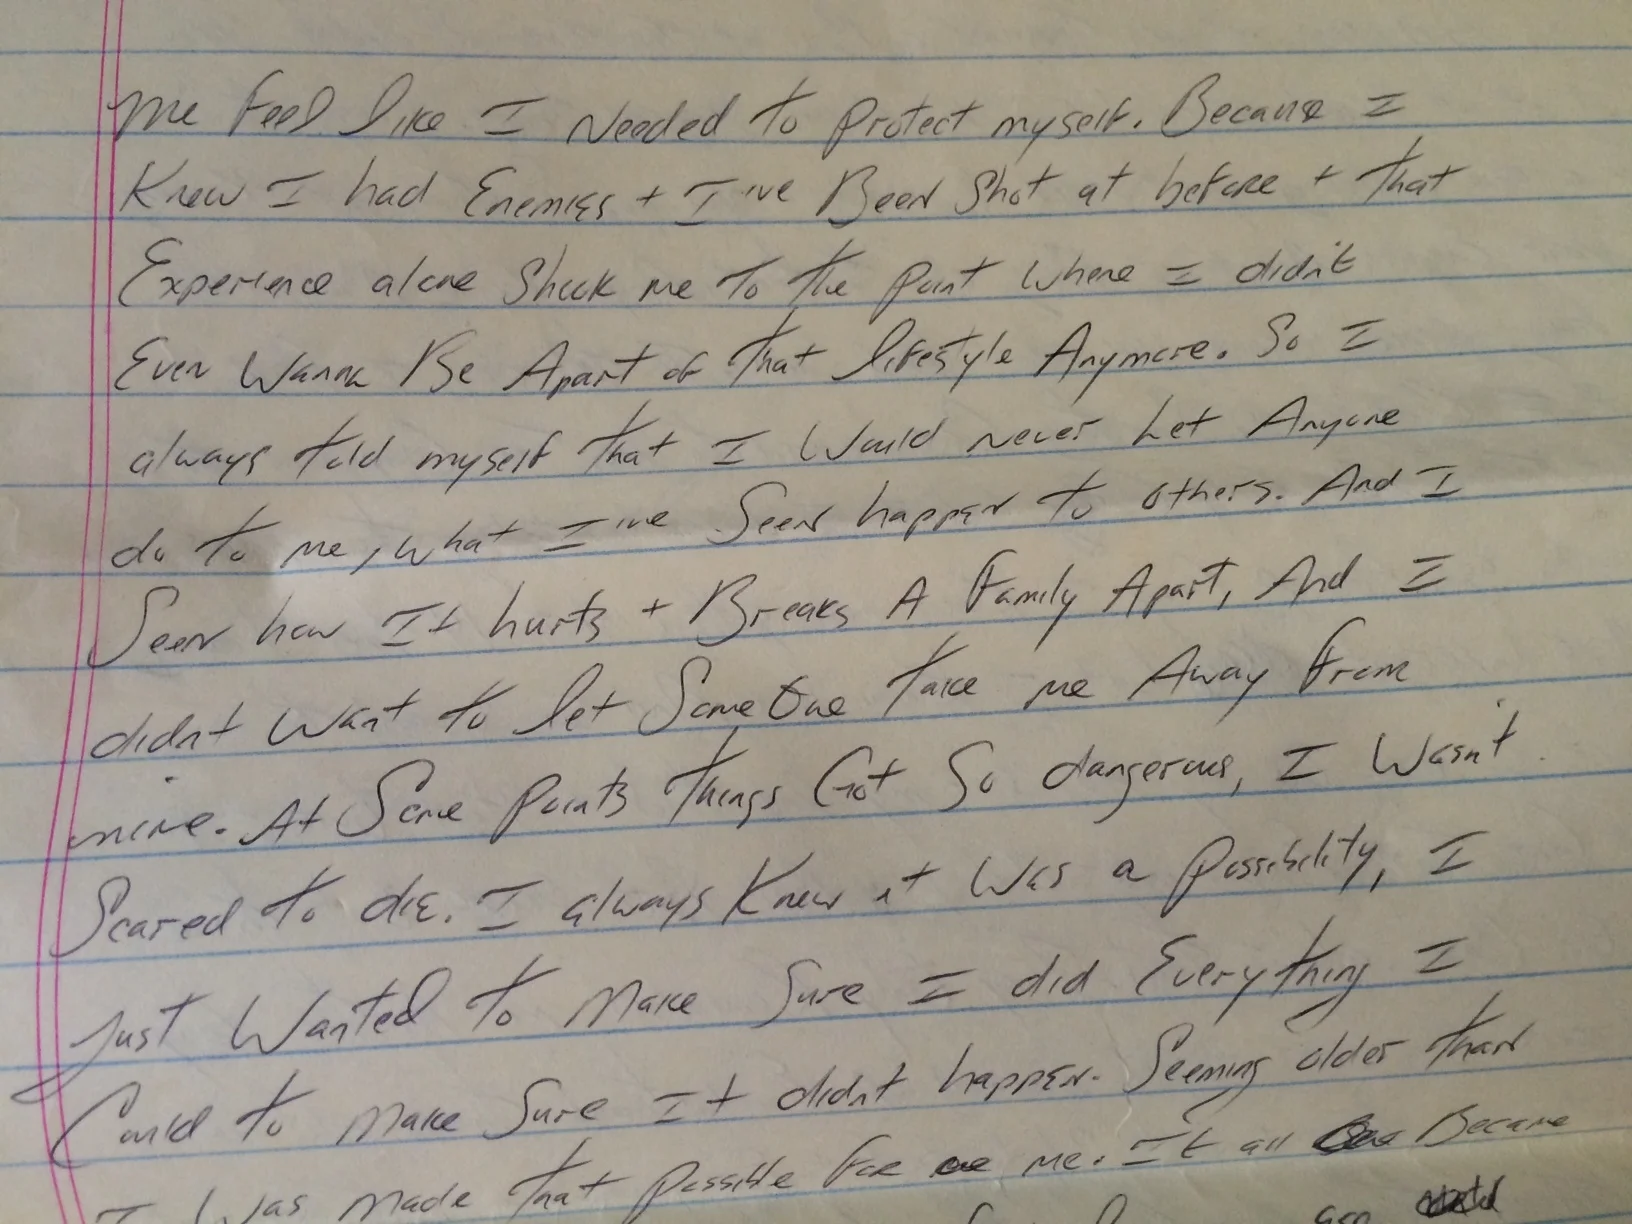 me Feel like I Needed to protect myself. Because I
Knew I had Enemies + I've Been Shot at before + that
Experience alone Shook me To the point Where I didn't
Even Wanna Be Apart of that lifestyle Anymore. So I
always told myself that I Would never Let Anyone
do to me, what I've Seen happen to others. And I
Seen how It hurts + Breaks A Family Apart, And I
didnt Want to let SomeOne take me Away From
mine. At Some points things Got So dangerous, I Wasn't
Scared to die. I always Knew it Was a possibility, I
Just Wanted to Make Sure I did Everything I
Could to Make Sure It didnt happen. Seeming older than
I Was Made that possible For me. It all Became